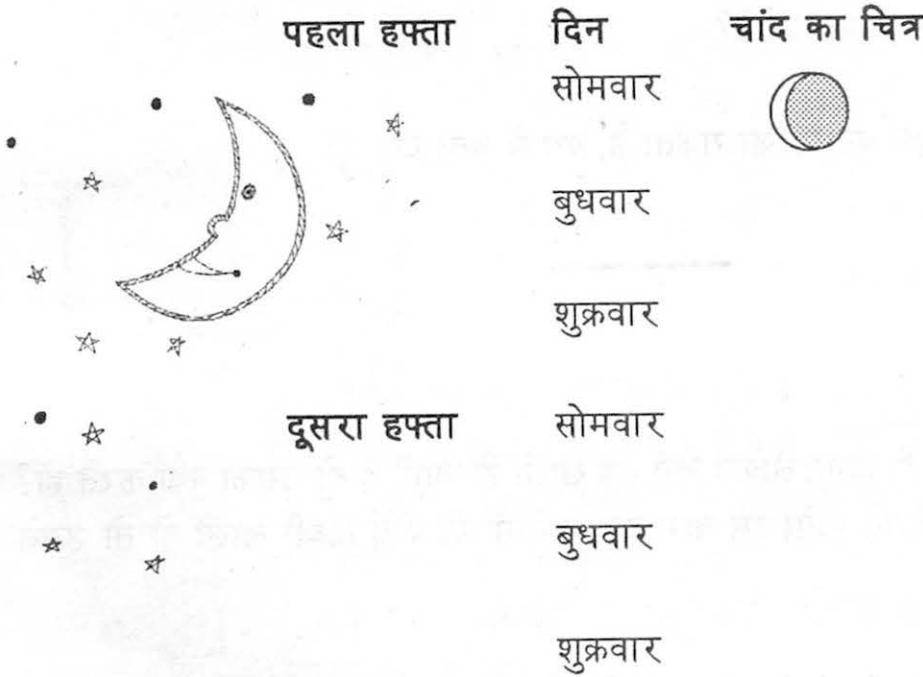 पहला हफ्ता दिन चांद का चित्र
सोमवार
बुधवार
शुक्रवार
दूसरा हफ्ता सोमवार
बुधवार
शुक्रवार